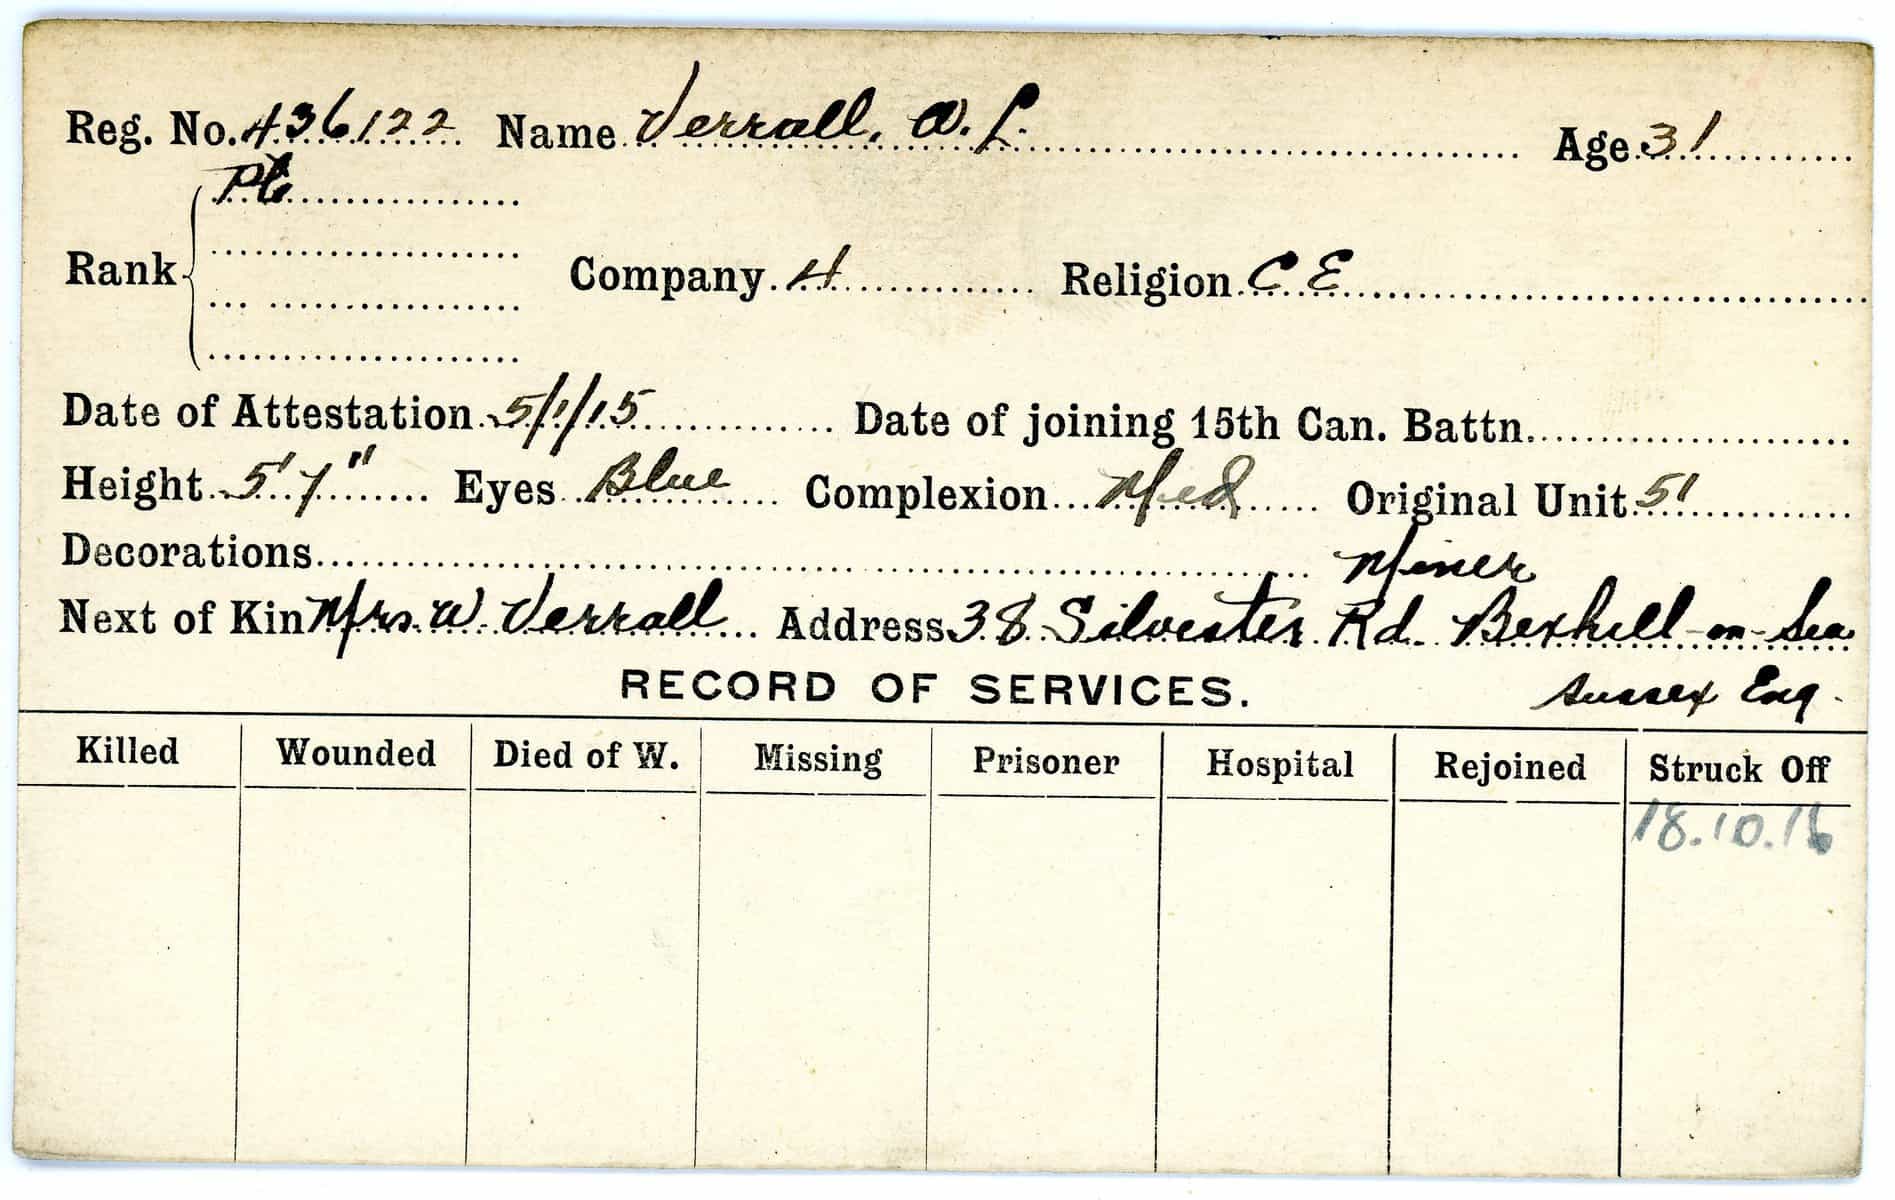 Reg. No. 436122 Name Verrall, A. L. Age 31
Pte
Rank Company 4 Religion C E
Date of Attestation 5/1/15 Date of joining 15th Can. Battn.
Height 5' 7" Eyes Blue Complexion Med Original Unit 51
Decorations Miner
Next of Kin Mrs. W. Verrall Address 38 Silvester Rd. Bexhill-on-Sea
RECORD OF SERVICES. Sussex Eng.
Killed Wounded Died of W. Missing Prisoner Hospital Rejoined Struck Off
18.10.16